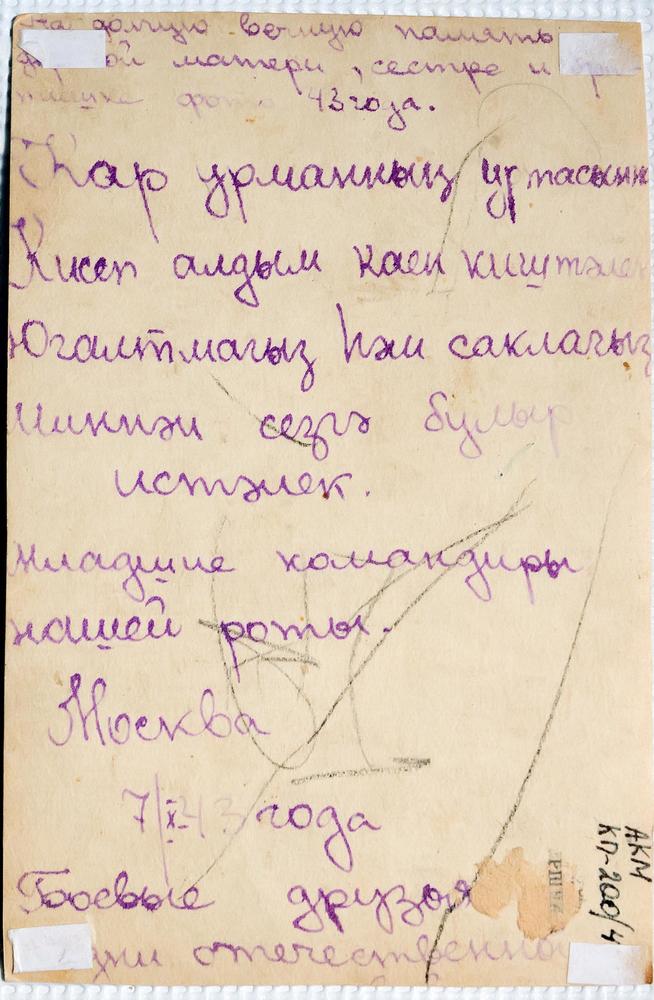 На долгую вечную память
матери, сестре и
фото 43 года.
Кар урманның уртасынн
Кисеп алдым каен
Югалтмагыз һәм саклагыз
Миннән сезгә булыр
истәлек.
младшие командиры
нашей роты.
Москва
7/X-43 года
Боевые друзья
отечественно
АКМ
КП-200/4